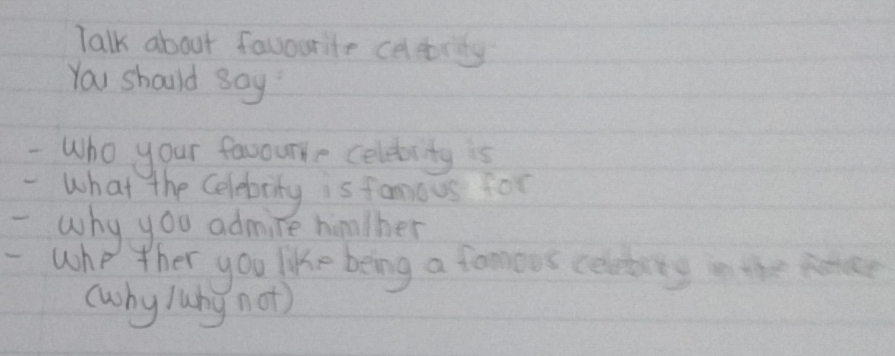 Talk about favourite celebrity
You should say:
- Who your favourite celebrity is
- What the Celebrity is famous for
- why you admire him/her
- Whe ther you like being a famous celebrity in the future
(why/why not)